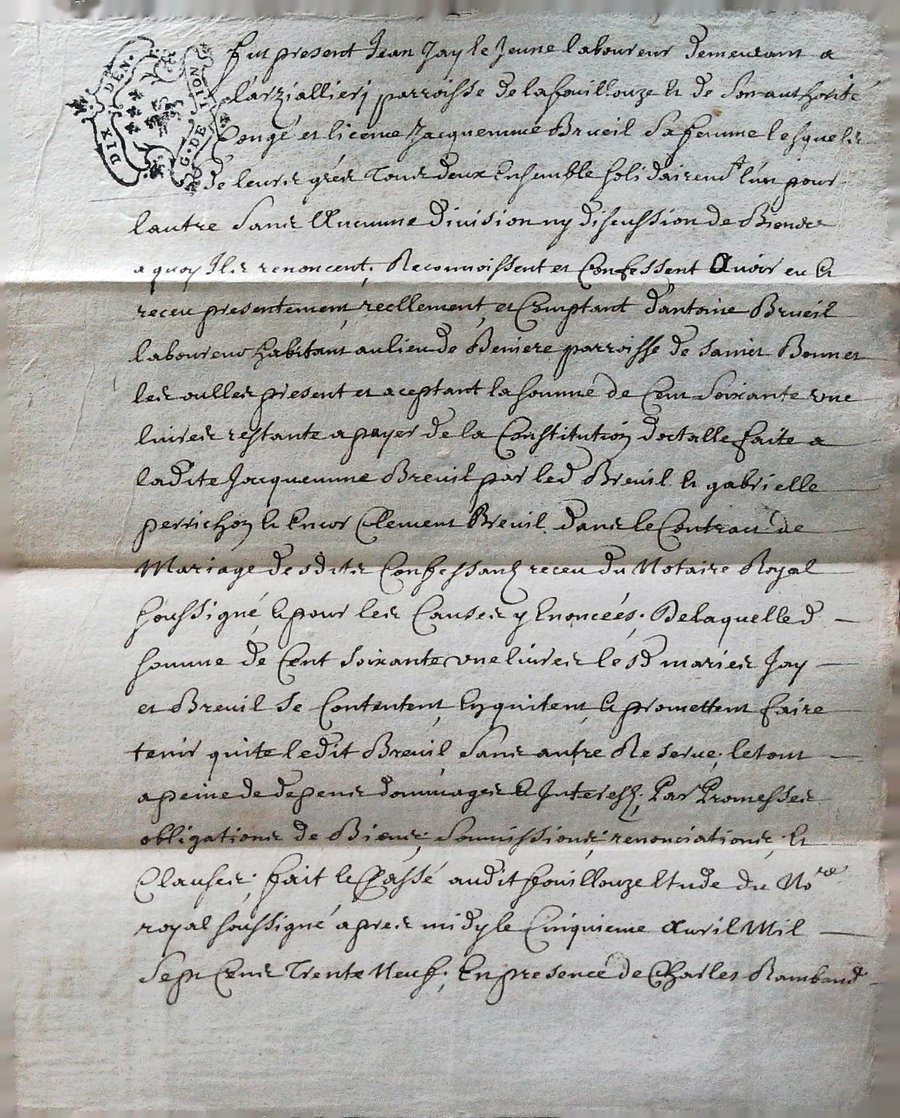 DIX DEN.
G. DE LION
fut present Jean Jay le Jeune laboureur demeurant a
larziallierj parroisse de lafouillouze et de son authorité
Congé et licence Jacquemme Brueil Sa femme lesquelz
de leurs gréz Tous deux Ensemble solidairemt lun pour
lautre Sans Aucunne division ny discussion de Biens
a quoy Ils renoncent, Reconnoissent et Confessent Avoir eu et
receu presentement, reellement, et Comptant d'antoine Brueil
laboureur habitant au lieu de Beniere parroisse de Sainct Bonnet
les oulles present et aceptant la somme de Cent Soixante une
livres restante a payer de la Constitution doctalle faite a
ladite Jacquemme Breuil par led Breuil et gabrielle
perrichon et Encor Clement Breuil dans le Contract de
Mariage desdits Confessantz receu du Notaire Royal
soussigné et pour les Causes y Enoncées. De laquelle d
somme de Cent soixante une livres lesd mariés Jay
et Breuil Se Contentent, Enquitent, et promettent faire
tenir quite ledit Breuil Sans autre Reserve, le tout
a peine de depens dommages et Interestz, Par Promesses
obligations de Biens, soumissions, renonciations, Et
Clauses, fait et Passé audit fouillouze Etude du Nore
royal soussigné apres midy le Cinquieme Avril Mil
Sept Cens Trente Neuf, En presence de Charles Rambaud